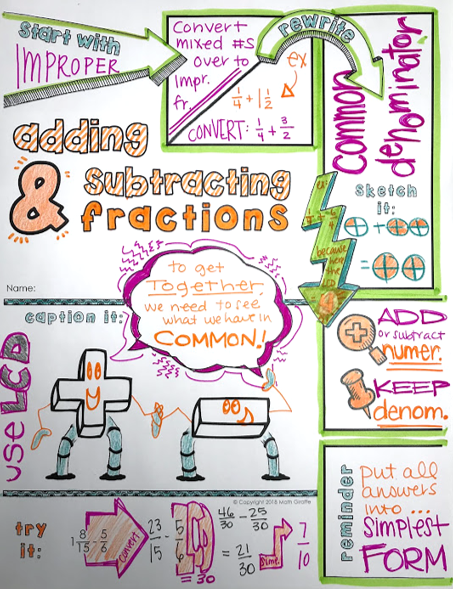 Start with
IMPROPER
Convert
mixed #s
over to
Impr.
fr.
ex
1/4 + 1 1/2
CONVERT: 1/4 + 3/2
rewrite
common
denominator
adding
& Subtracting
fractions
sketch
it:
+
=
because
the
LCD
4
Name:
caption it:
to get
Together,
we need to see
what we have in
COMMON!
use LCD
ADD
or subtract
numer.
KEEP
denom.
© Copyright 2018 Math Giraffe
try
it:
1 8/15 - 5/6
convert
23/15 - 5/6
LCD
= 30
46/30 - 25/30
= 21/30
sime.
7/10
reminder
put all
answers
into ...
Simplest
FORM